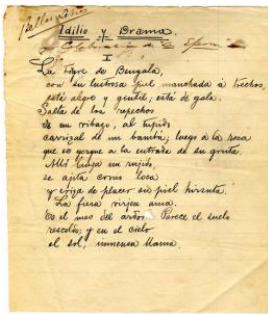 Idilio y Drama.
I
La tigre de Bengala,
con su lustrosa piel manchada á trechos,
está alegre y gentil, está de gala.
Salta de los repechos
de un ribazo, al tupido
carrizal de un bambú; luego á la roca
que se yergue á la entrada de su gruta.
Allí lanza un rujido,
se ajita como loca
y eriza de placer su piel hirsuta.
La fiera virjen ama.
Es el mes del ardor. Parece el suelo
rescoldo; y en el cielo
el sol, inmensa llama.